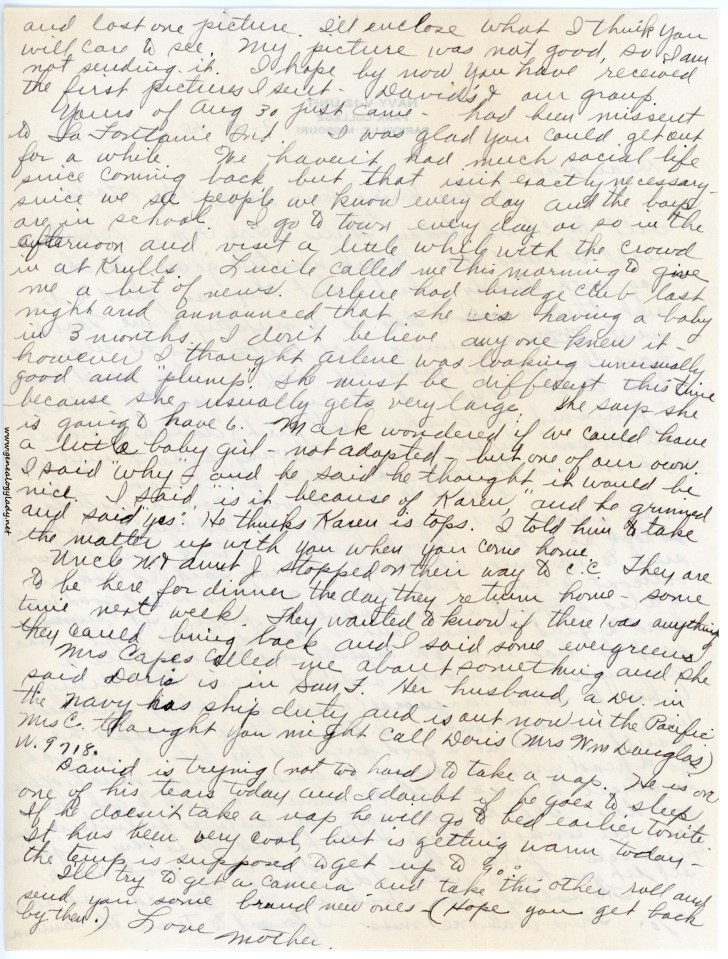 and lost one picture. I'll enclose what I think you
will care to see. My picture was not good, so I am
not sending it. I hope by now you have received
the first pictures I sent - David's & our group.
Yours of Aug 30 just came - had been missent
to La Fontaine Ind. I was glad you could get out
for a while. We haven't had much social life
since coming back but that isn't exactly necessary
since we see people we know every day and the boys
are in school. I go to town every day or so in the
afternoon and visit a little while with the crowd
in at Krulls. Lucile called me this morning to give
me a bit of news. Arlene had bridge club last
night and announced that she is having a baby
in 3 months. I don't believe anyone knew it -
however I thought Arlene was looking unusually
good and "plump". She must be different this time
because she usually gets very large. She says she
is going to have 6. Mark wondered if we could have
a little baby girl - not adopted - but one of our own.
I said "Why"? and he said he thought it would be
nice. I said "is it because of Karen," and he grinned
and said "yes". He thinks Karen is tops. I told him to take
the matter up with you when you come home.
Uncle N. & Aunt J stopped on their way to C.C. They are
to be here for dinner the day they return home - some
time next week. They wanted to know if there was anything
they could bring back and I said some evergreens
Mrs Capes called me about something and she
said Doris is in San F. Her husband, a Dr. in
the navy has ship duty and is out now in the Pacific
Mrs C. thought you might call Doris (Mrs Wm Douglas)
W. 9718.
David is trying (not too hard) to take a nap. He is on
one of his tears today and I doubt if he goes to sleep.
If he doesn't take a nap he will go to bed earlier tonite.
It has been very cool, but is getting warm today -
the temp is supposed to get up to 90°.
I'll try to get a camera and take this other roll and
send you some brand new ones - (Hope you get back
by then.) Love
Mother.
www.genealogylady.net